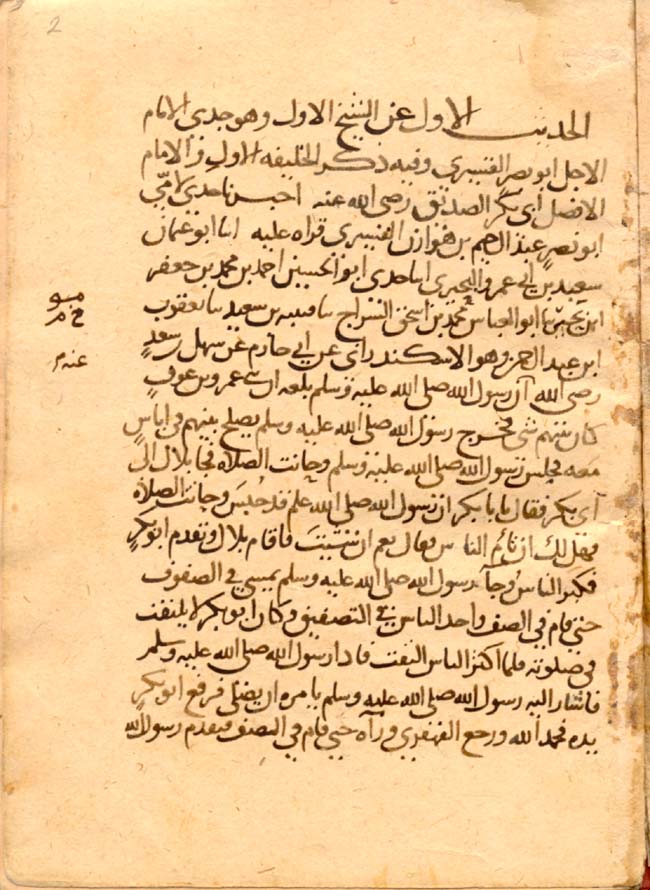 2
الحديث الاول عن الشيخ الاول وهو جدي الامام
الاجل ابو نصر القشيري وفيه ذكر الخليفه الاول والامام
الافضل ابي بكر الصديق رضي الله عنه اخبرنا جدي لامي
ابو نصر عبد الرحيم بن هوازن القشيري قراه عليه انا ابو عثمان
سعيد بن ابي عمرو البحيري انا جدي ابو الحسين احمد بن محمد بن جعفر
ابن بحير نا ابو العباس محمد بن اسحق السراج نا قتيبه بن سعيد نا يعقوب
ابن عبد الرحمن وهو الاسكندراني عن ابي حازم عن سهل بن سعد
رضي الله ان رسول الله صلى الله عليه وسلم بلغه ان بني عمرو بن عوف
كان بينهم شي فخرج رسول الله صلى الله عليه وسلم يصلح بينهم في اناس
معه فحبس رسول الله صلى الله عليه وسلم وحانت الصلاه فجا بلال الى
ابي بكر فقال يا با بكر ان رسول الله صلى الله علم قد حبس وحانت الصلاه
فهل لك ان تؤم الناس فقال نعم ان شئت فاقام بلال وتقدم ابو بكر
فكبر الناس وجآ رسول الله صلى الله عليه وسلم يمشي في الصفوف
حتى قام في الصف واخذ الناس في التصفيق وكان ابو بكر لا يلتفت
في صلوته فلما اكثر الناس التفت فاذا رسول الله صلى الله عليه وسلم
فاشار اليه رسول الله صلى الله عليه وسلم يامره ان يصلي فرفع ابو بكر
يده فحمد الله ورجع القهقري ورآه حتى قام في الصف فتقدم رسول الله
عنه م